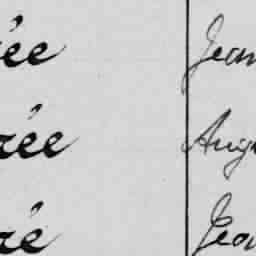 ée Jean
rée Aug
ré Jea